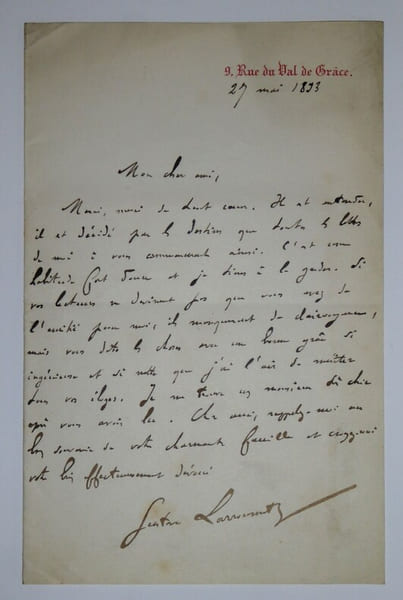 9. Rue du Val de Grâce.
27 mai 1893
Mon cher ami,
Merci, merci de tout cœur. Il est entendu,
il est décidé par les destins que toutes les lettres
de moi à vous commencent ainsi. C'est une
habitude fort douce et je tiens à la garder. Si
vos lecteurs ne devinent pas que vous avez de
l'amitié pour moi, ils manquent de clairvoyance,
mais vous dites les choses avec une bonne grâce si
ingénieuse et si nette que j'ai l'air de mériter
tous vos éloges. Je me trouve un monsieur
après vous avoir lu. Cher ami, rappelez-moi au
bon souvenir de votre charmante famille et croyez-moi
votre bien affectueusement dévoué
Gustave Larroumet